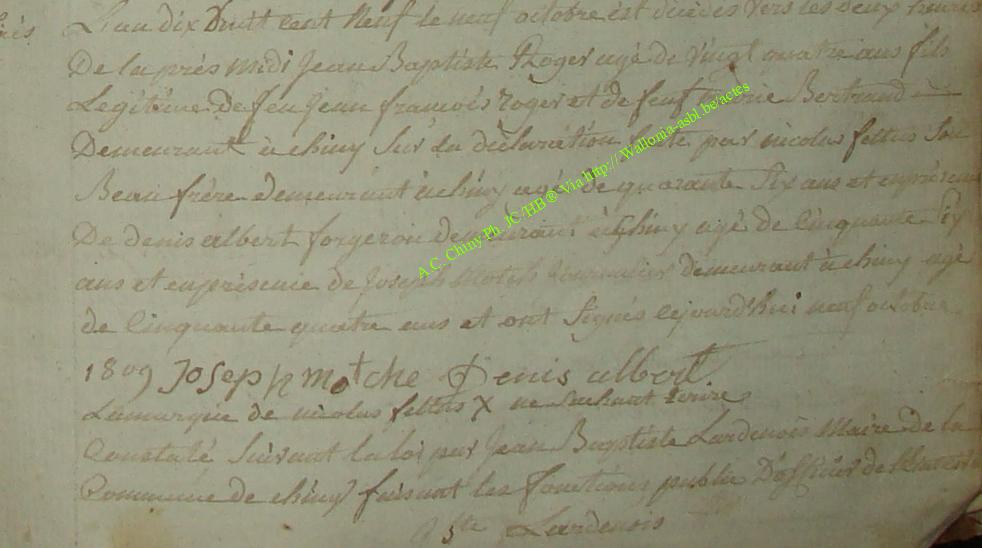 L'an dix huit cent Neuf le neuf octobre est décédés vers les deux heures
De la près midi Jean Baptiste Roger agé de vingt quatre ans fils
Legitime de feu Jean francois roger et de feu marie Bertrand
Demeurant à chiny sur la déclaration faite par nicolas fettus son
Beau frère demeurant à chiny agé de quarante Six ans et en présence
De denis albert forgeron demeurant à Chiny agé de Cinquante Six
ans et en présence de Joseph Journalier demeurant à chiny agé
de Cinquante quatre ans et ont Signés cejourd'hui neuf octobre
1809 Joseph motche Denis albert
La marque de nicolas fettus X ne Sachant Ecrire
Constaté Suivant la loi par Jean Baptiste Lardenois Maire de la
Commune de chiny faisant les fonctions public D'officier de l'Etat
Bste Lardenois
A.C. Chiny Ph. JC/HB® Via http://Wallonia-asbl.be/actes